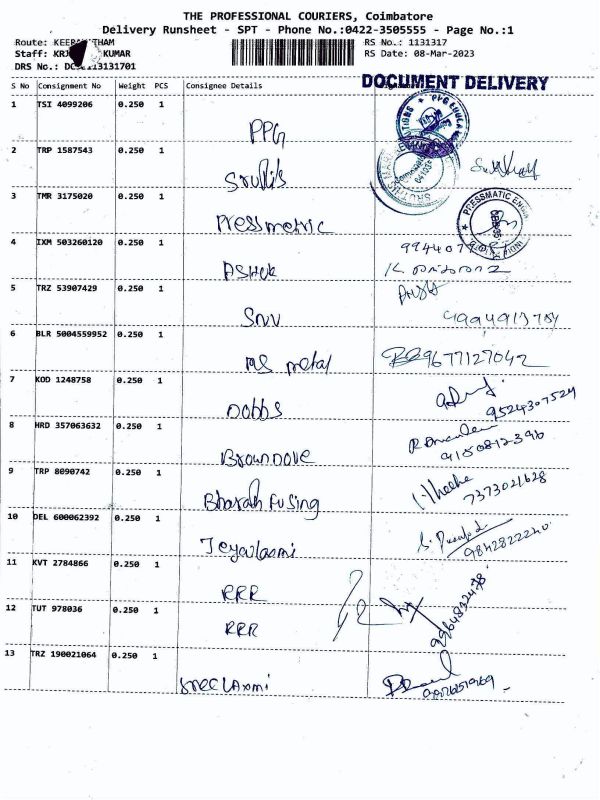 THE PROFESSIONAL COURIERS, Coimbatore
Delivery Runsheet - SPT - Phone No.:0422-3505555 - Page No.:1
Route: THAM
RS No.: 1131317
Staff: KUMAR
RS Date: 08-Mar-2023
DRS No.: 3131701
DOCUMENT DELIVERY
S No Consignment No Weight PCS Consignee Details
1 TSI 4099206 0.250 1 PPG
2 TRP 1587543 0.250 1
3 TMR 3175020 0.250 1 Pressmetric
PRESSMATIC
4 IXM 503260120 0.250 1 ASHOK
5 TRZ 53907429 0.250 1 SNV
6 BLR 5004559952 0.250 1 metal 9677127042
7 KOD 1248758 0.250 1 DOBBS 9524307529
8 HRD 357063632 0.250 1 BROWNDOVE 9150812396
9 TRP 8090742 0.250 1 Bharath Fusing 7373021628
10 DEL 600062392 0.250 1 Jeyalaxmi 9842822220
11 KVT 2784866 0.250 1 RRR
12 TUT 978036 0.250 1 RRR
13 TRZ 190021064 0.250 1 Sree Laxmi